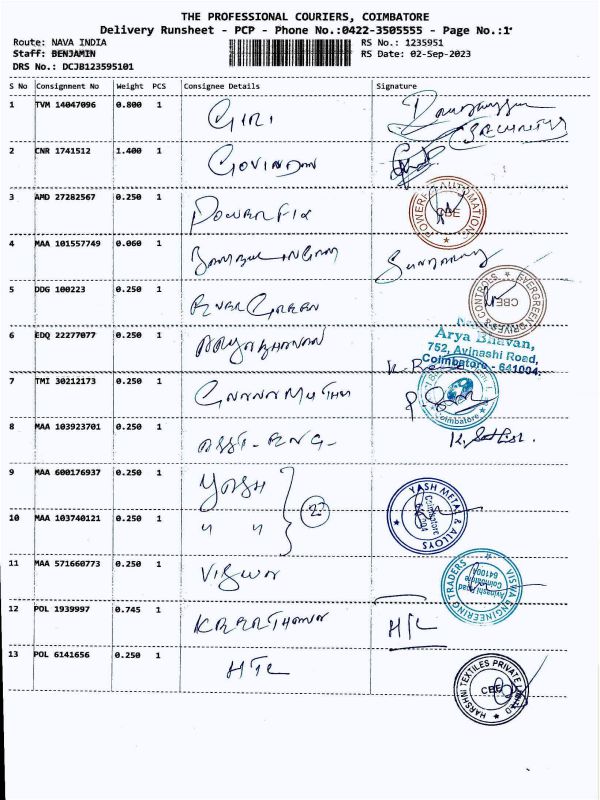 THE PROFESSIONAL COURIERS, COIMBATORE
Delivery Runsheet - PCP - Phone No.:0422-3505555 - Page No.:1
Route: NAVA INDIA RS No.: 1235951
Staff: BENJAMIN RS Date: 02-Sep-2023
DRS No.: DCJB123595101
S No Consignment No Weight PCS Consignee Details Signature
1 TVM 14047096 0.800 1 GIRI
(SECURITY)
2 CNR 1741512 1.400 1 GOVINDAN
3 AMD 27282567 0.250 1 POWERFIX POWERF AUTOMATION CBE
4 MAA 101557749 0.060 1
5 DDG 100223 0.250 1 EVERGREEN EVERGREEN DRIVES & CONTROLS CBE
6 EDQ 22277077 0.250 1 ARYABHAVAN Arya Bhavan,
752, Avinashi Road,
Coimbatore - 641004.
7 TMI 30212173 0.250 1 GNANAMUTHU Coimbatore
8 MAA 103923701 0.250 1 ASST-ENG-
9 MAA 600176937 0.250 1 YASH YASH METAL & ALLOYS Coimbatore
10 MAA 103740121 0.250 1 " "
11 MAA 571660773 0.250 1 VISWA VISWA ENGINEERING TRADERS Avinashi Road Coimbatore
12 POL 1939997 0.745 1 KEERTHANA HTL
13 POL 6141656 0.250 1 HTL HARSHNI TEXTILES PRIVATE LIMITED CBE